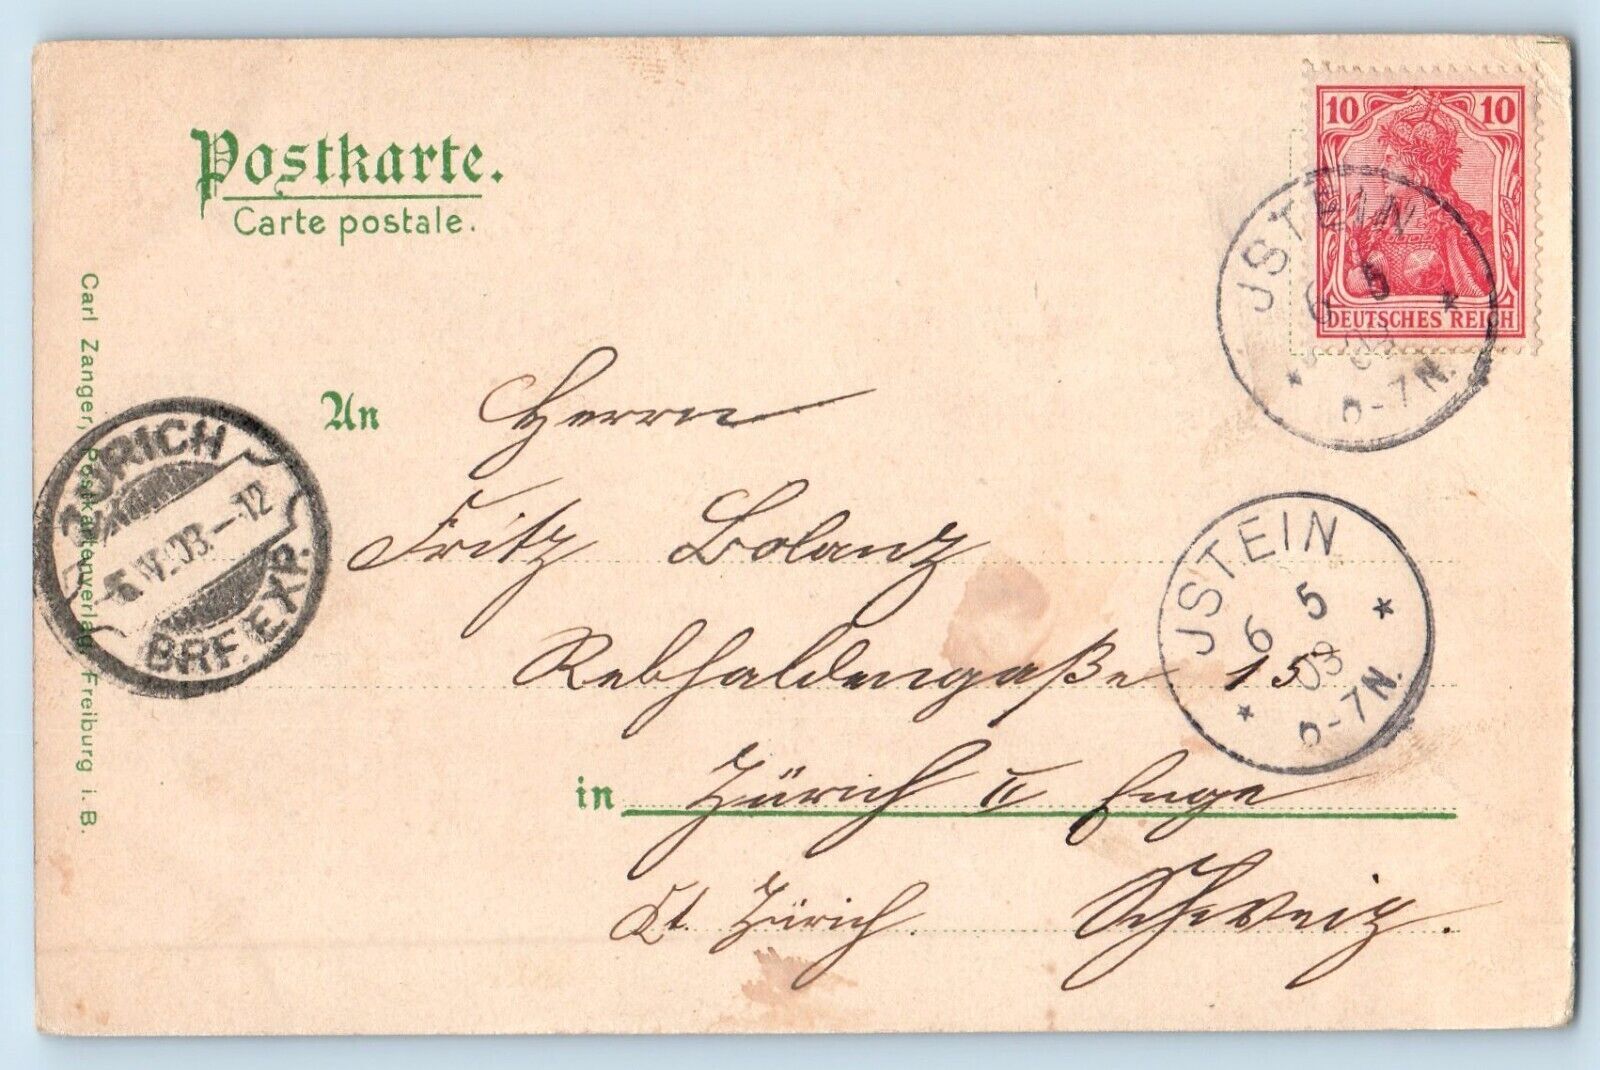 Postkarte.
Carte postale.
10 10
DEUTSCHES REICH
JSTEIN
6 5
03
-7N.
Carl Zanger, Postkartenverlag Freiburg i. B.
An Herrn
Fritz Bolanz
Rebhaldengaße 15
in Zürich II Enge
Kt. Zürich. Schweiz.
ZÜRICH
03.-12
BRF. EXP.
JSTEIN
6 5
03
-7N.